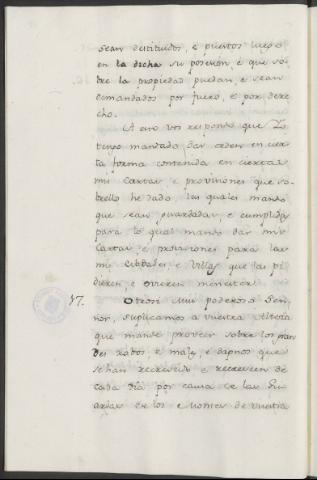 sean restituidos, e puestos luego
en la dicha su posesion, e que so-
bre la propiedad puedan, e sean
demandados por fuero, e por dere-
cho.
A esto vos respondo que Yo
tengo mandada dar orden en cier-
ta forma contenida en ciertas
mis Cartas, e provisiones que so-
brello he dado las quales mando
que sean guardadas, e cumplidas
para lo qual mando dar mis
Cartas, e provisiones para las
mis Cibdades, e Villas que las pi-
dieren, e ovieren menester.
17. Otrosi mui poderoso Se-
ñor, suplicamos a vuestra Alteza
que mande proveer sobre los gran-
des robos, e males, e dapnos que
se han recrecido e recrecen de
cada dia por causa de las Gu-
ardas de los e Montes de vuestra